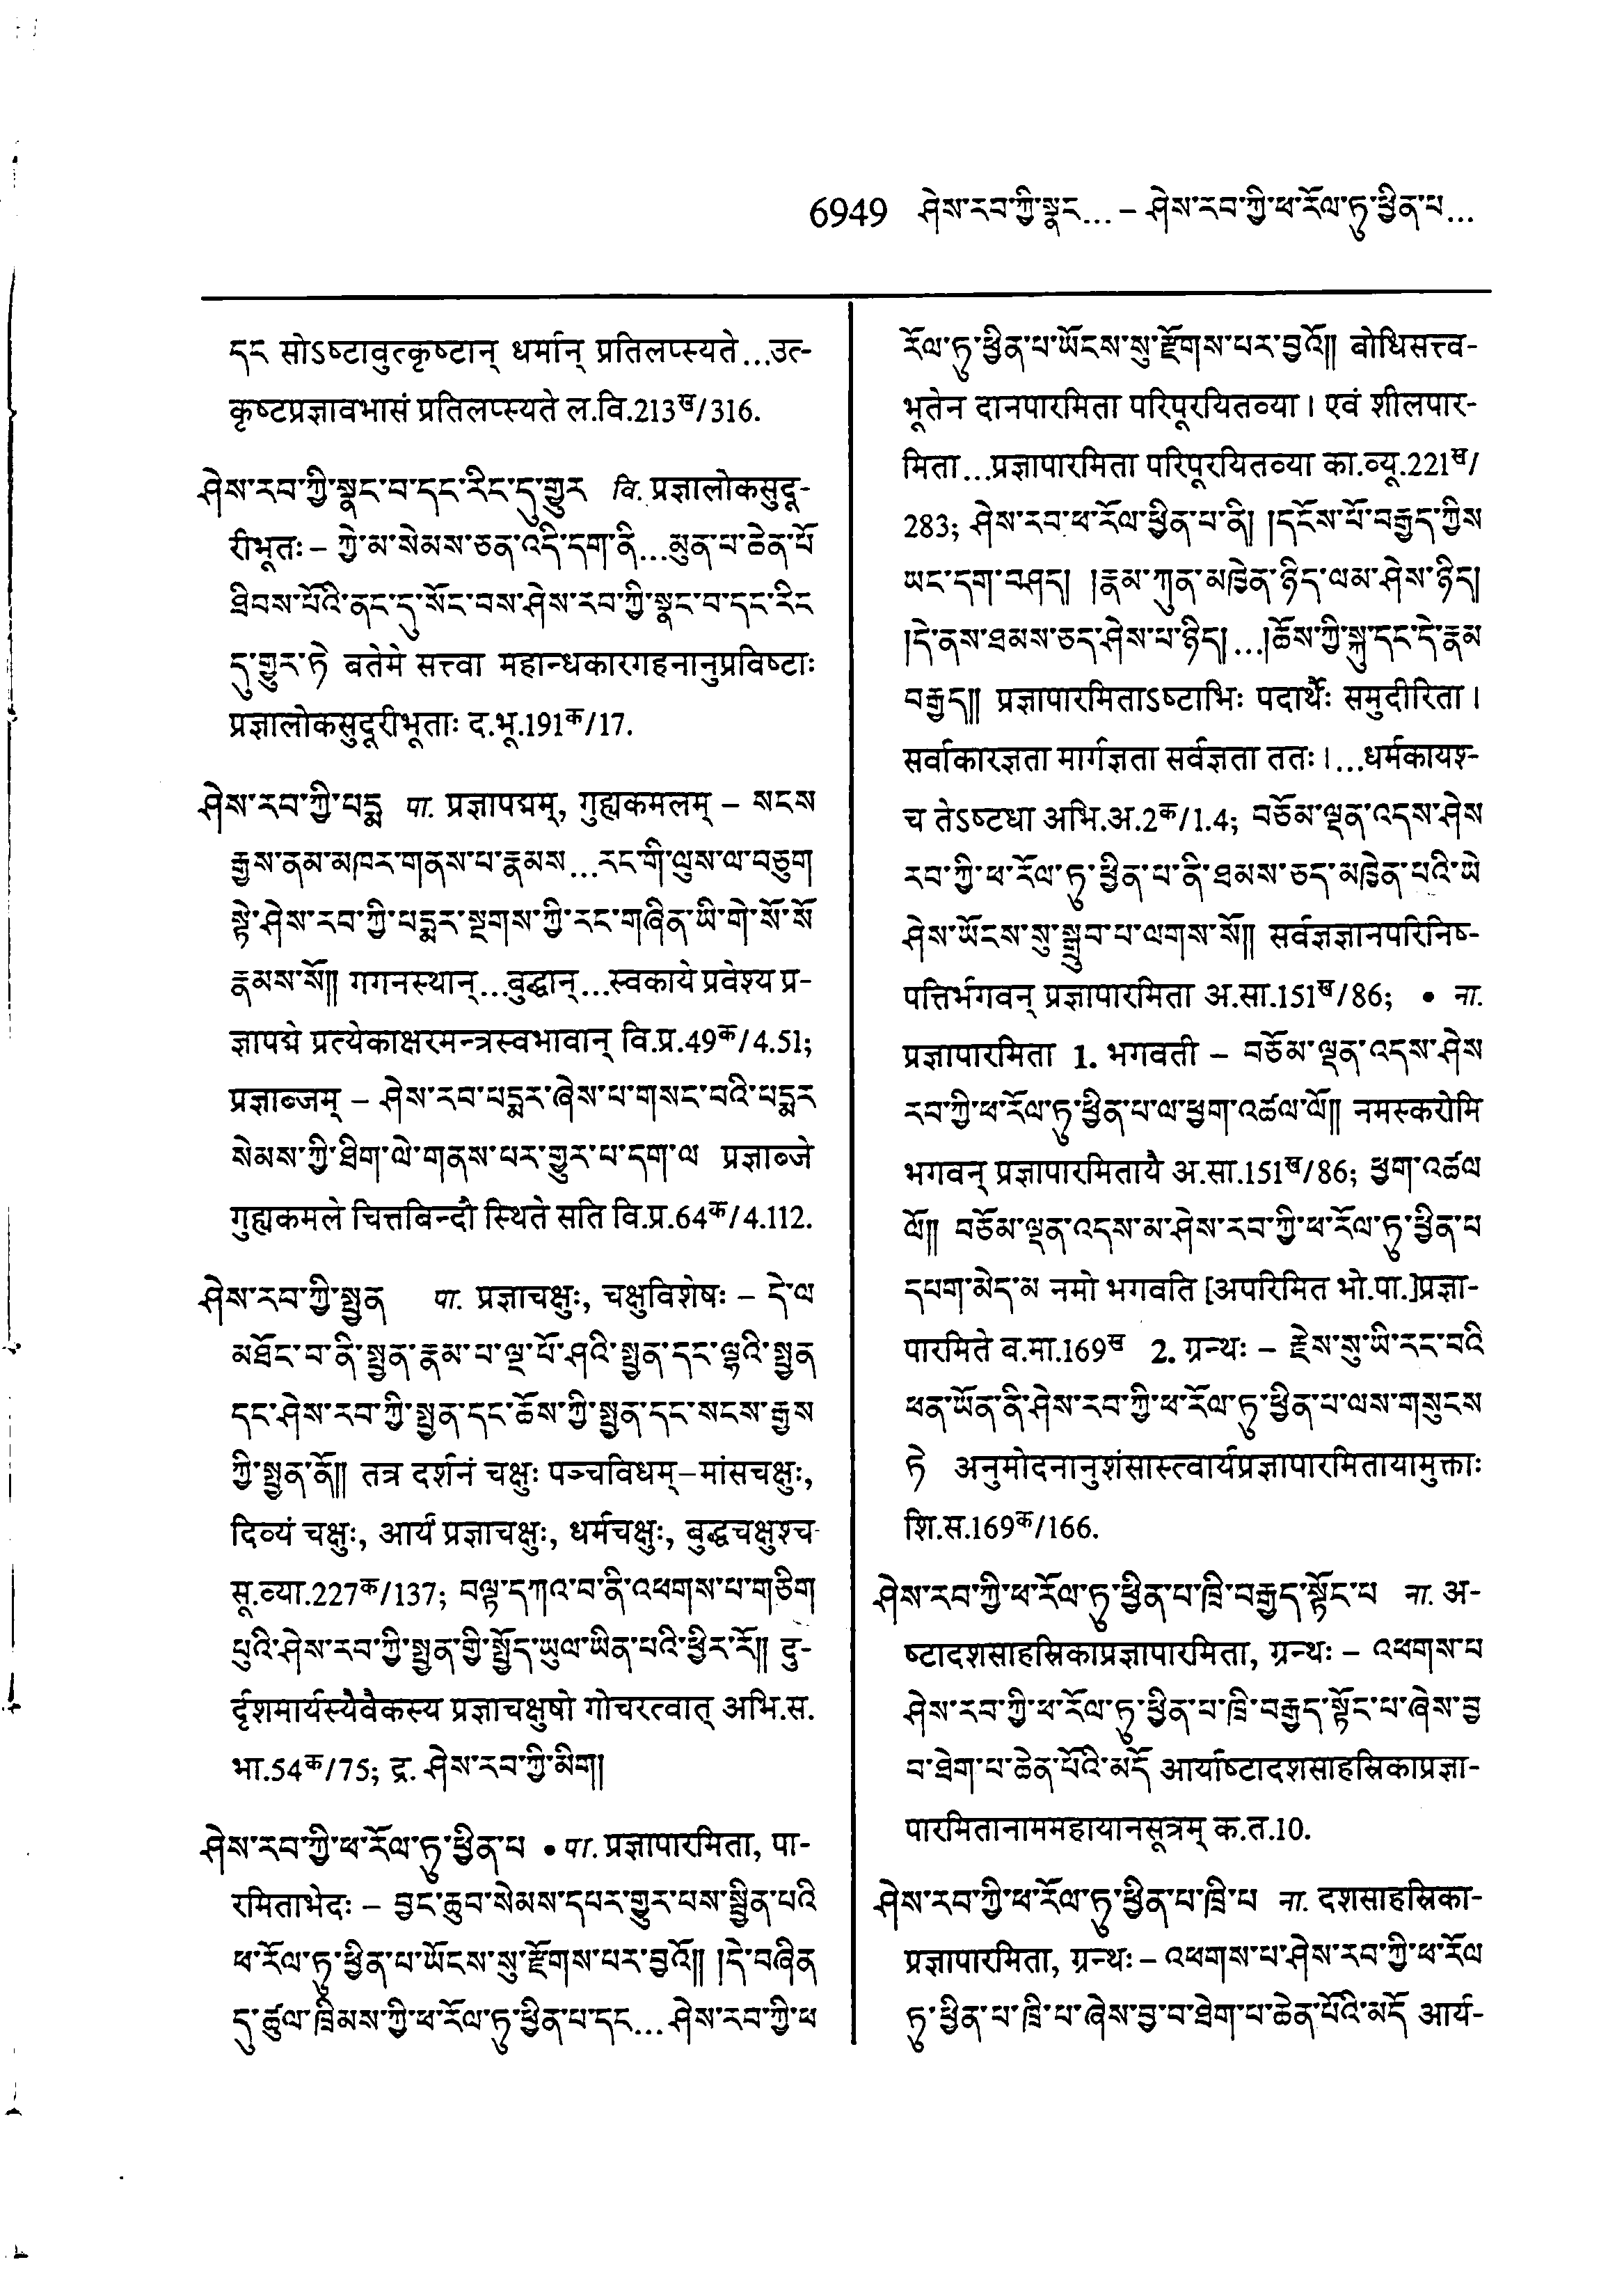 6949 ཤེས་རབ་ཀྱི་སྣང... – ཤེས་རབ་ཀྱི་ཕ་རོལ་ཏུ་ཕྱིན་པ...
དང སোঽष्टावुत्कृष्टान् धर्मान् प्रतिलप्स्यते...उत-
कृष्टप्रज्ञावभासं प्रतिलप्स्यते ल.वि.213ख/316.
ཤེས་རབ་ཀྱི་སྣང་བ་དང་རིང་དུ་གྱུར वि. प्रज्ञालोकसुदू-
रीभूतः – ཀྱེ་མ་སེམས་ཅན་འདི་དག་ནི...མུན་པ་ཆེན་པོ
ཐིབས་པོའི་ནང་དུ་སོང་བས་ཤེས་རབ་ཀྱི་སྣང་བ་དང་རིང
དུ་གྱུར་ཏེ बतेमे सत्त्वा महान्धकारगहनानुप्रविष्टाः
प्रज्ञालोकसुदूरीभूताः द.भू.191क/17.
ཤེས་རབ་ཀྱི་པདྨ पा. प्रज्ञापद्मम्, गुह्यकमलम् – སངས
རྒྱས་ནམ་མཁར་གནས་པ་རྣམས...རང་གི་ལུས་ལ་བཅུག
སྟེ་ཤེས་རབ་ཀྱི་པདྨར་སྔགས་ཀྱི་རང་གཞིན་ཡི་གེ་སོ་སོ
རྣམས་སོ།། गगनस्थान्...बुद्धान्...स्वकाये प्रवेश्य प्र-
ज्ञापद्मे प्रत्येकाक्षरमन्त्रस्वभावान् वि.प्र.49क/4.51;
प्रज्ञाब्जम् – ཤེས་རབ་པདྨར་ཞེས་པ་གསང་བའི་པདྨར
སེམས་ཀྱི་ཐིག་ལེ་གནས་པར་གྱུར་པ་དག་ལ प्रज्ञाब्जे
गुह्यकमले चित्तबिन्दौ स्थिते सति वि.प्र.64क/4.112.
ཤེས་རབ་ཀྱི་སྤྱན पा. प्रज्ञाचक्षुः, चक्षुविशेषः – དེ་ལ
མཐོང་བ་ནི་སྤྱན་རྣམ་པ་ལྔ་པོ་ཤའི་སྤྱན་དང་ལྷའི་སྤྱན
དང་ཤེས་རབ་ཀྱི་སྤྱན་དང་ཆོས་ཀྱི་སྤྱན་དང་སངས་རྒྱས
ཀྱི་སྤྱན་ནོ།། तत्र दर्शनं चक्षुः पञ्चविधम्–मांसचक्षुः,
दिव्यं चक्षुः, आर्यं प्रज्ञाचक्षुः, धर्मचक्षुः, बुद्धचक्षुश्च
सू.व्या.227क/137; བལྟ་དཀའ་བ་ནི་འཕགས་པ་གཅིག
པུའི་ཤེས་རབ་ཀྱི་སྤྱན་གྱི་སྤྱོད་ཡུལ་ཡིན་པའི་ཕྱིར་རོ།། दु-
र्दृशमार्यस्यैवैकस्य प्रज्ञाचक्षुषो गोचरत्वात् अभि.स.
भा.54क/75; द्र. ཤེས་རབ་ཀྱི་མིག།
ཤེས་རབ་ཀྱི་ཕ་རོལ་ཏུ་ཕྱིན་པ • पा. प्रज्ञापारमिता, पा-
रमिताभेदः – བྱང་ཆུབ་སེམས་དཔར་གྱུར་པས་སྦྱིན་པའི
ཕ་རོལ་ཏུ་ཕྱིན་པ་ཡོངས་སུ་རྫོགས་པར་བྱའོ།། །དེ་བཞིན
དུ་ཚུལ་ཁྲིམས་ཀྱི་ཕ་རོལ་ཏུ་ཕྱིན་པ་དང... ཤེས་རབ་ཀྱི་ཕ
རོལ་ཏུ་ཕྱིན་པ་ཡོངས་སུ་རྫོགས་པར་བྱའོ།། बोधिसत्त्व-
भूतेन दानपारमिता परिपूरयितव्या। एवं शीलपार-
मिता...प्रज्ञापारमिता परिपूरयितव्या का.व्यू.221ख/
283; ཤེས་རབ་ཕ་རོལ་ཕྱིན་པ་ནི། །དངོས་པོ་བརྒྱད་ཀྱིས
ཡང་དག་བཤད། །རྣམ་ཀུན་མཁྱེན་ཉིད་ལམ་ཤེས་ཉིད།
།དེ་ནས་ཐམས་ཅད་ཤེས་པ་ཉིད།...།ཆོས་ཀྱི་སྐུ་དང་དེ་རྣམ
བརྒྱད།། प्रज्ञापारमिताऽष्टाभिः पदार्थैः समुदीरिता।
सर्वाकारज्ञता मार्गज्ञता सर्वज्ञता ततः।...धर्मकायश्-
च तेऽष्टधा अभि.अ.2क/1.4; བཅོམ་ལྡན་འདས་ཤེས
རབ་ཀྱི་ཕ་རོལ་ཏུ་ཕྱིན་པ་ནི་ཐམས་ཅད་མཁྱེན་པའི་ཡེ
ཤེས་ཡོངས་སུ་སྒྲུབ་པ་ལགས་སོ།། सर्वज्ञज्ञानपरिनिष-
पत्तिर्भगवन् प्रज्ञापारमिता अ.सा.151ख/86; • ना.
प्रज्ञापारमिता 1. भगवती – བཅོམ་ལྡན་འདས་ཤེས
རབ་ཀྱི་ཕ་རོལ་ཏུ་ཕྱིན་པ་ལ་ཕྱག་འཚལ་ལོ།། नमस्करोमि
भगवन् प्रज्ञापारमितायै अ.सा.151ख/86; ཕྱག་འཚལ
ལོ།། བཅོམ་ལྡན་འདས་མ་ཤེས་རབ་ཀྱི་ཕ་རོལ་ཏུ་ཕྱིན་པ
དཔག་མེད་མ नमो भगवति [अपरिमित भो.पा.]प्रज्ञा-
पारमिते ब.मा.169ख 2. ग्रन्थः – རྗེས་སུ་ཡི་རང་བའི
ཕན་ཡོན་ནི་ཤེས་རབ་ཀྱི་ཕ་རོལ་ཏུ་ཕྱིན་པ་ལས་གསུངས
ཏེ अनुमोदनानुशंसास्त्वार्यप्रज्ञापारमितायामुक्ताः
शि.स.169क/166.
ཤེས་རབ་ཀྱི་ཕ་རོལ་ཏུ་ཕྱིན་པ་ཁྲི་བརྒྱད་སྟོང་པ ना. अ-
ष्टादशसाहस्रिकाप्रज्ञापारमिता, ग्रन्थः – འཕགས་པ
ཤེས་རབ་ཀྱི་ཕ་རོལ་ཏུ་ཕྱིན་པ་ཁྲི་བརྒྱད་སྟོང་པ་ཞེས་བྱ
བ་ཐེག་པ་ཆེན་པོའི་མདོ आर्याष्टादशसाहस्रिकाप्रज्ञा-
पारमितानाममहायानसूत्रम् क.त.10.
ཤེས་རབ་ཀྱི་ཕ་རོལ་ཏུ་ཕྱིན་པ་ཁྲི་པ ना. दशसाहस्रिका-
प्रज्ञापारमिता, ग्रन्थः – འཕགས་པ་ཤེས་རབ་ཀྱི་ཕ་རོལ
ཏུ་ཕྱིན་པ་ཁྲི་པ་ཞེས་བྱ་བ་ཐེག་པ་ཆེན་པོའི་མདོ आर्य-